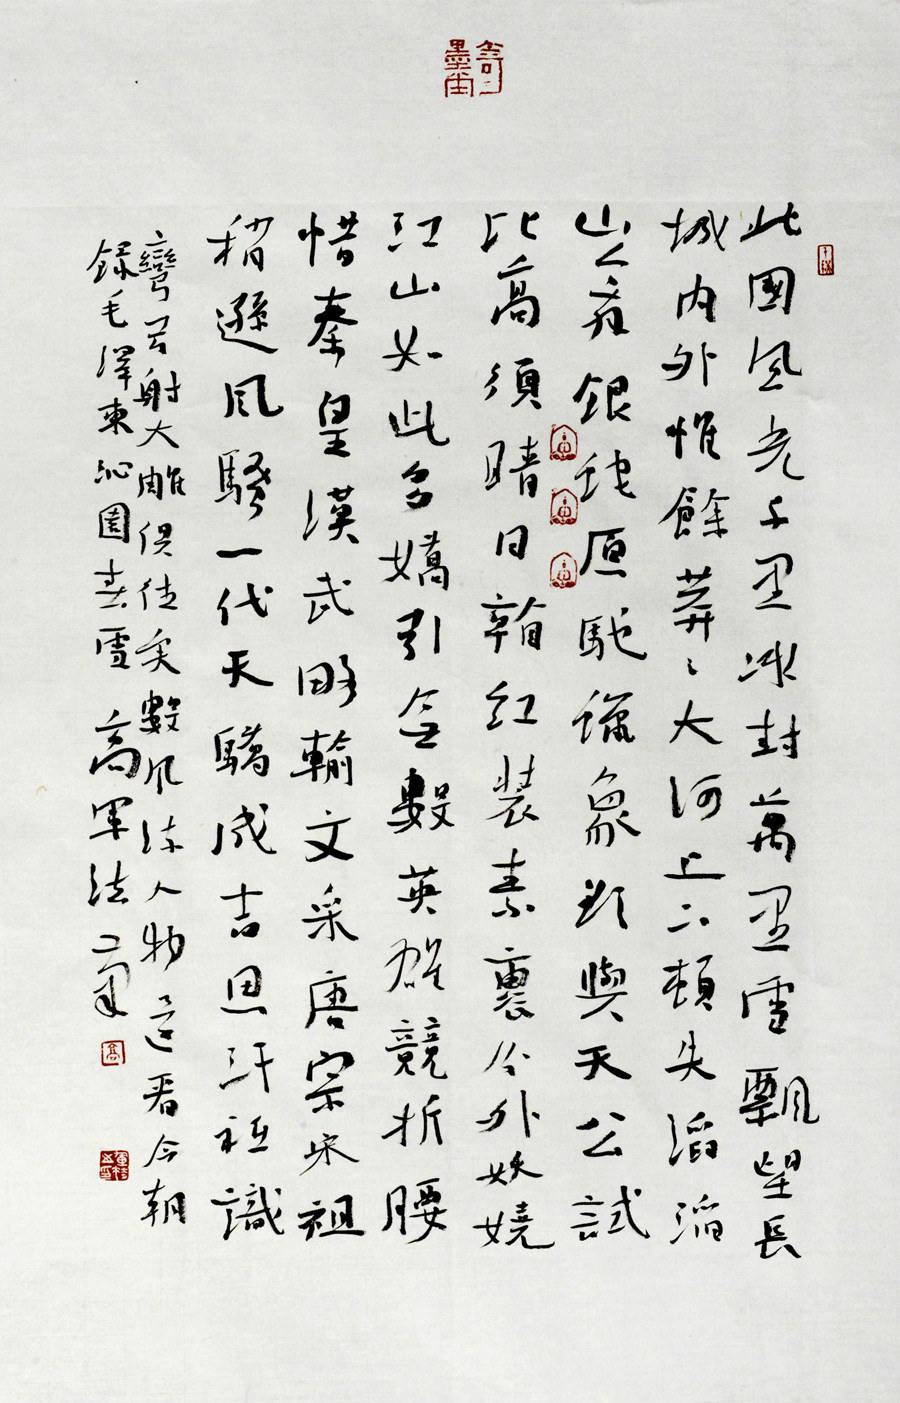 北國風光千里冰封萬里雪飄望長
城内外惟餘莽々大河上下頓失滔滔
山舞銀蛇原馳蠟象欲與天公試
比高須晴日看紅裝素裹分外妖嬈
江山如此多嬌引無數英雄競折腰
惜秦皇漢武略輸文采唐宗宋祖
稍遜風騷一代天驕成吉思汗祗識
彎弓射大雕俱往矣數風流人物還看今朝
錄毛澤東沁園春雪 高軍法書